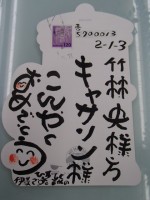 〒900013
2-1-3
竹林央様方
キャサリン様
こんやく
おめでとう